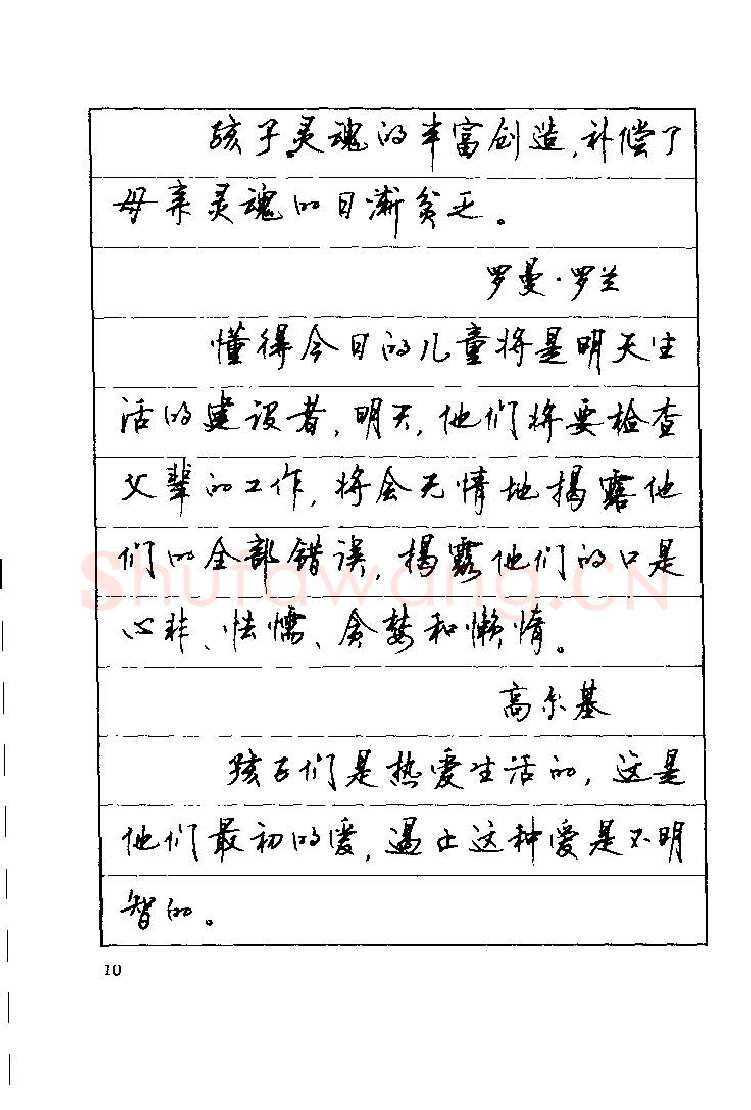 孩子灵魂的丰富创造,补偿了
母亲灵魂的日渐贫乏。
罗曼·罗兰
懂得今日的儿童将是明天生
活的建设者,明天,他们将要检查
父辈的工作,将会无情地揭露他
们的全部错误,揭露他们的口是
心非、怯懦、贪婪和懒惰。
高尔基
孩子们是热爱生活的,这是
他们最初的爱,遏止这种爱是不明
智的。
10
Shufawang.CN